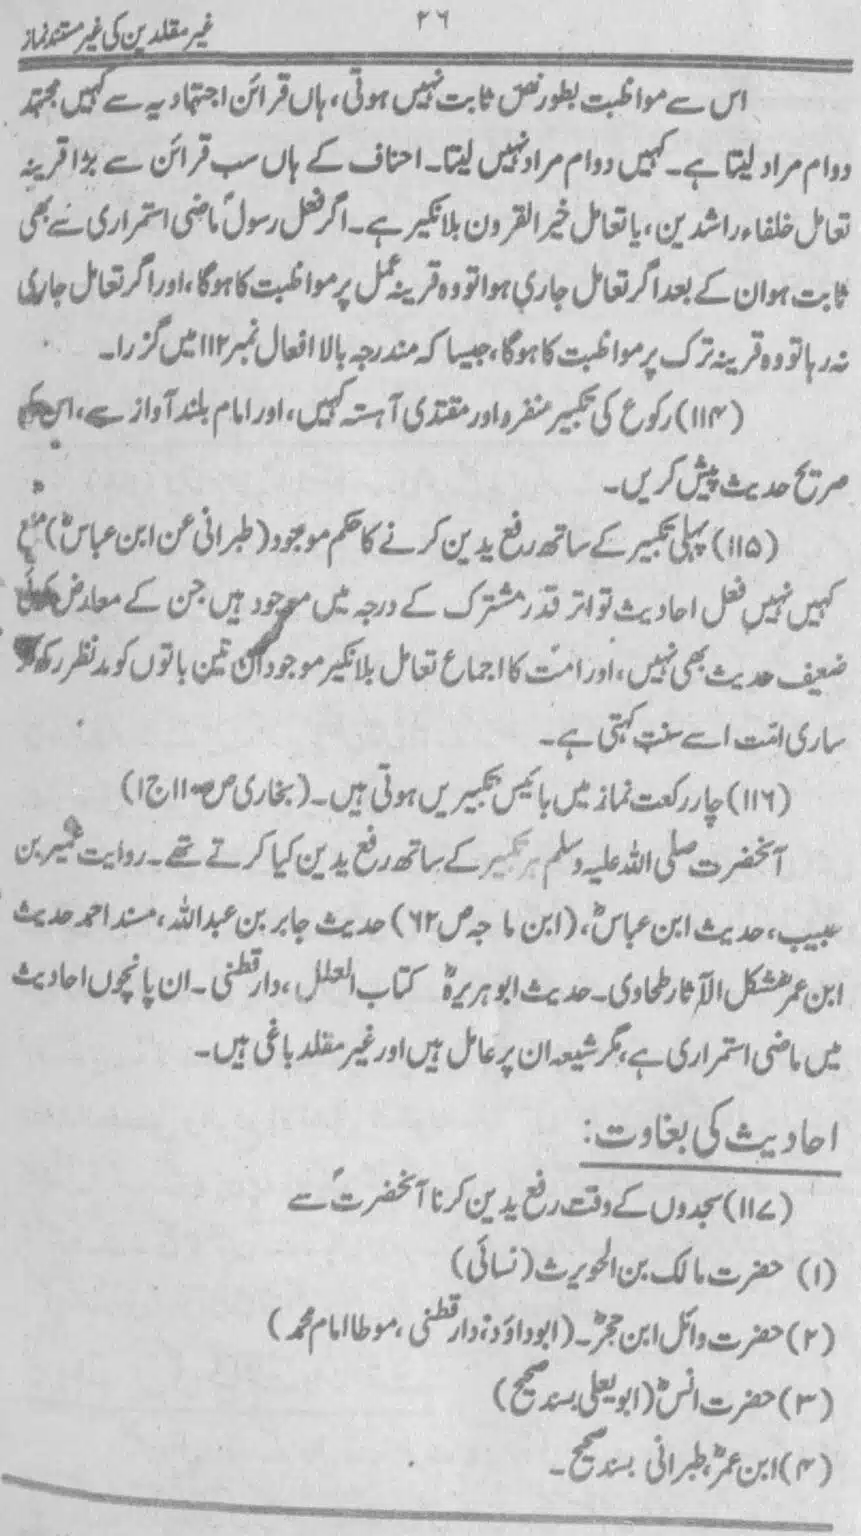 ۲۶
غیر مقلدین کی غیر مستند نماز
اس سے مواظبت بطور نص ثابت نہیں ہوتی، ہاں قرائن اجتہادیہ سے کہیں مجتہد
دوام مراد لیتا ہے۔ کہیں دوام مراد نہیں لیتا۔ احناف کے ہاں سب قرائن سے بڑا قرینہ
تعامل خلفاء راشدین، یا تعامل خیر القرون بلانکیر ہے۔ اگر فعل رسولؐ ماضی استمراری سے بھی
ثابت ہو ان کے بعد اگر تعامل جاری ہوا تو وہ قرینہ عمل پر مواظبت کا ہوگا، اور اگر تعامل جاری
نہ رہا تو وہ قرینہ ترک پر مواظبت کا ہوگا، جیسا کہ مندرجہ بالا افعال نمبر ۱۱۲ میں گزرا۔
(۱۱۴) رکوع کی تکبیر منفرد اور مقتدی آہستہ کہیں، اور امام بلند آواز سے، اس کی
صریح حدیث پیش کریں۔
(۱۱۵) پہلی تکبیر کے ساتھ رفع یدین کرنے کا حکم موجود (طبرانی عن ابن عباسؓ) منع
کہیں نہیں فعل احادیث تواتر قدر مشترک کے درجہ میں موجود ہیں جن کے معارض کوئی
ضعیف حدیث بھی نہیں، اور امت کا اجماع تعامل بلانکیر موجود ان تین باتوں کو مدنظر رکھ کر
ساری امت اسے سنت کہتی ہے۔
(۱۱۶) چار رکعت نماز میں بائیس تکبیریں ہوتی ہیں۔ (بخاری ص ۱۱۰ ج ۱)
آنحضرت صلی اللہ علیہ وسلم ہر تکبیر کے ساتھ رفع یدین کیا کرتے تھے۔ روایت عمیر بن
حبیب، حدیث ابن عباسؓ، (ابن ماجہ ص ۶۲) حدیث جابر بن عبداللہ، مسند احمد حدیث
ابن عمرؓ مشکل الآثار طحاوی۔ حدیث ابوہریرہؓ کتاب العلل، دارقطنی۔ ان پانچوں احادیث
میں ماضی استمراری ہے، مگر شیعہ ان پر عامل ہیں اور غیر مقلد باغی ہیں۔
احادیث کی بغاوت:
(۱۱۷) سجدوں کے وقت رفع یدین کرنا آنحضرتؐ سے
(۱) حضرت مالک بن الحویرث (نسائی)
(۲) حضرت وائل ابن حجرؓ۔ (ابوداؤد، دارقطنی، موطا امام محمد)
(۳) حضرت انسؓ (ابویعلی بسند صحیح)
(۴) ابن عمرؓ، طبرانی بسند صحیح۔